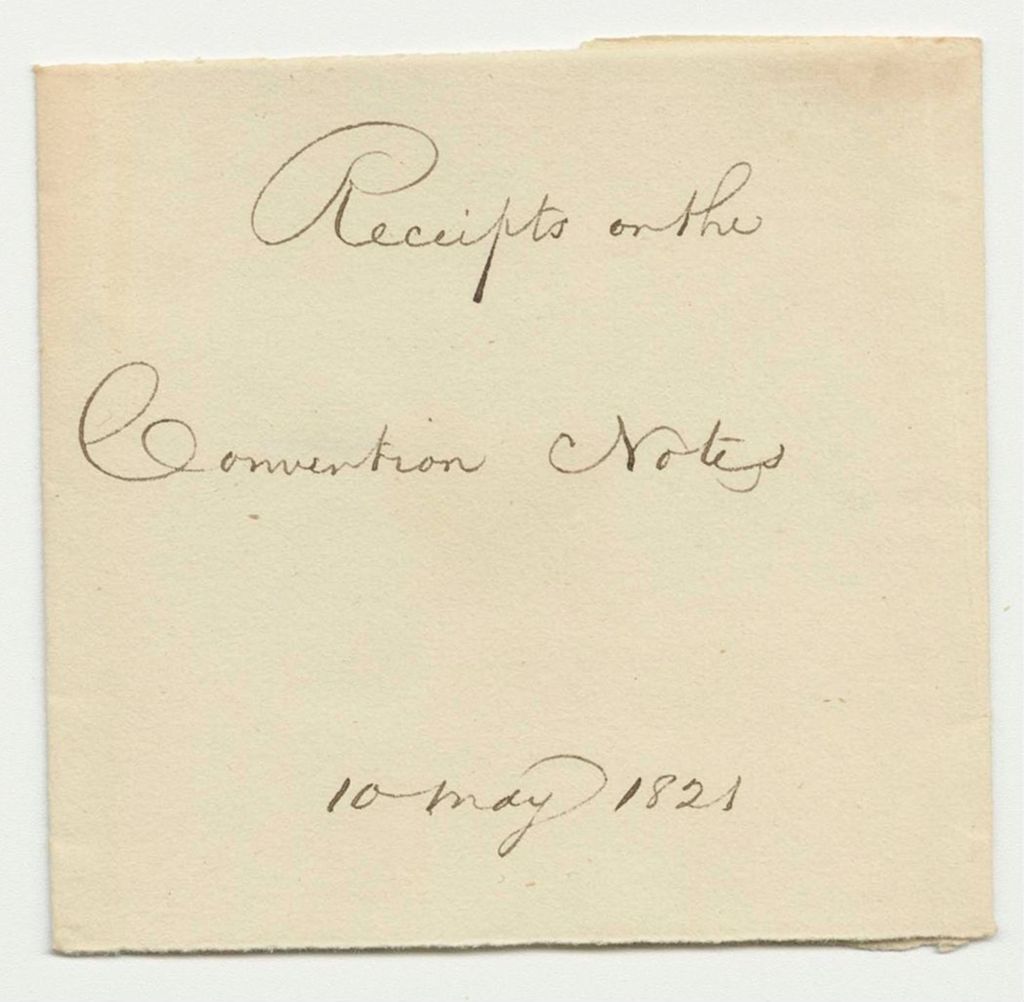 Receipts on the
Convention Notes
10 may 1821